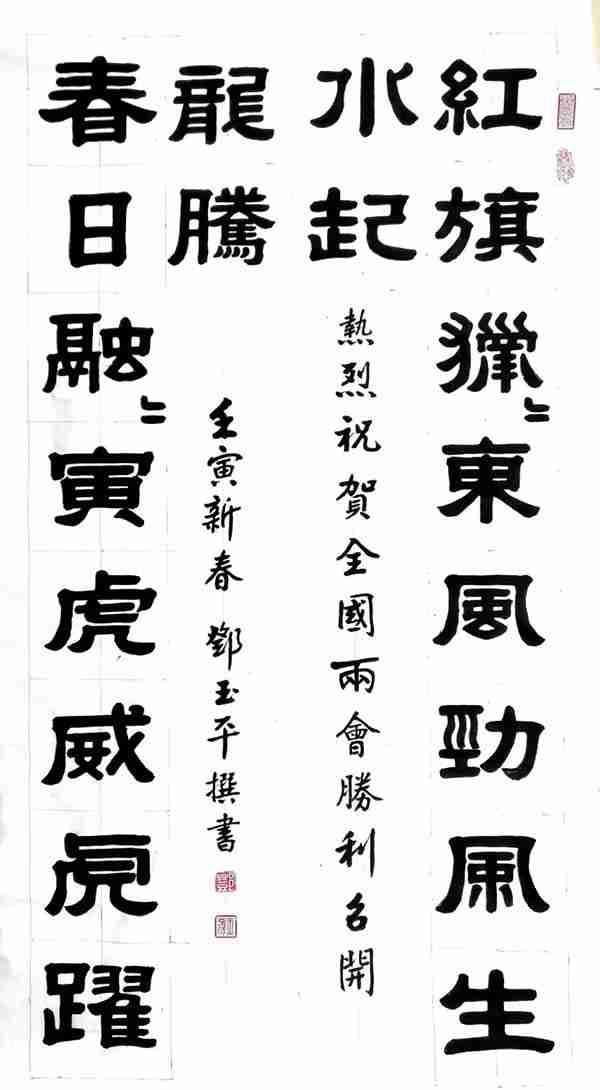 紅旗獵〻東風勁風生
水起
熱烈祝賀全國兩會勝利召開
春日融〻寅虎威虎躍
龍騰
壬寅新春 鄧玉平撰書